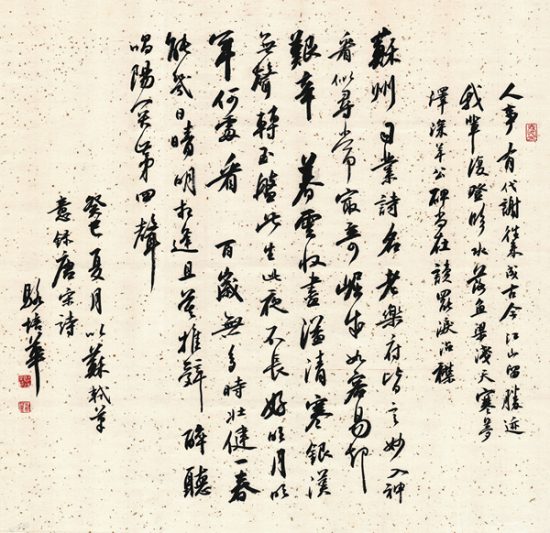 人事有代謝往來成古今江山留勝迹
我輩復登臨水落魚梁淺天寒夢
澤深羊公碑尚在讀罷淚沾襟
蘇州司業詩名老樂府皆言妙入神
看似尋常最奇崛成如容易却
艱辛 暮雲收盡溢清寒銀漢
無聲轉玉盤此生此夜不長好明月明
年何處看 百歲無多時壯健一春
能幾日晴明相逢且莫推辭醉聽
唱陽關第四聲
癸巳夏月以蘇軾筆
意錄唐宋詩
駱培華